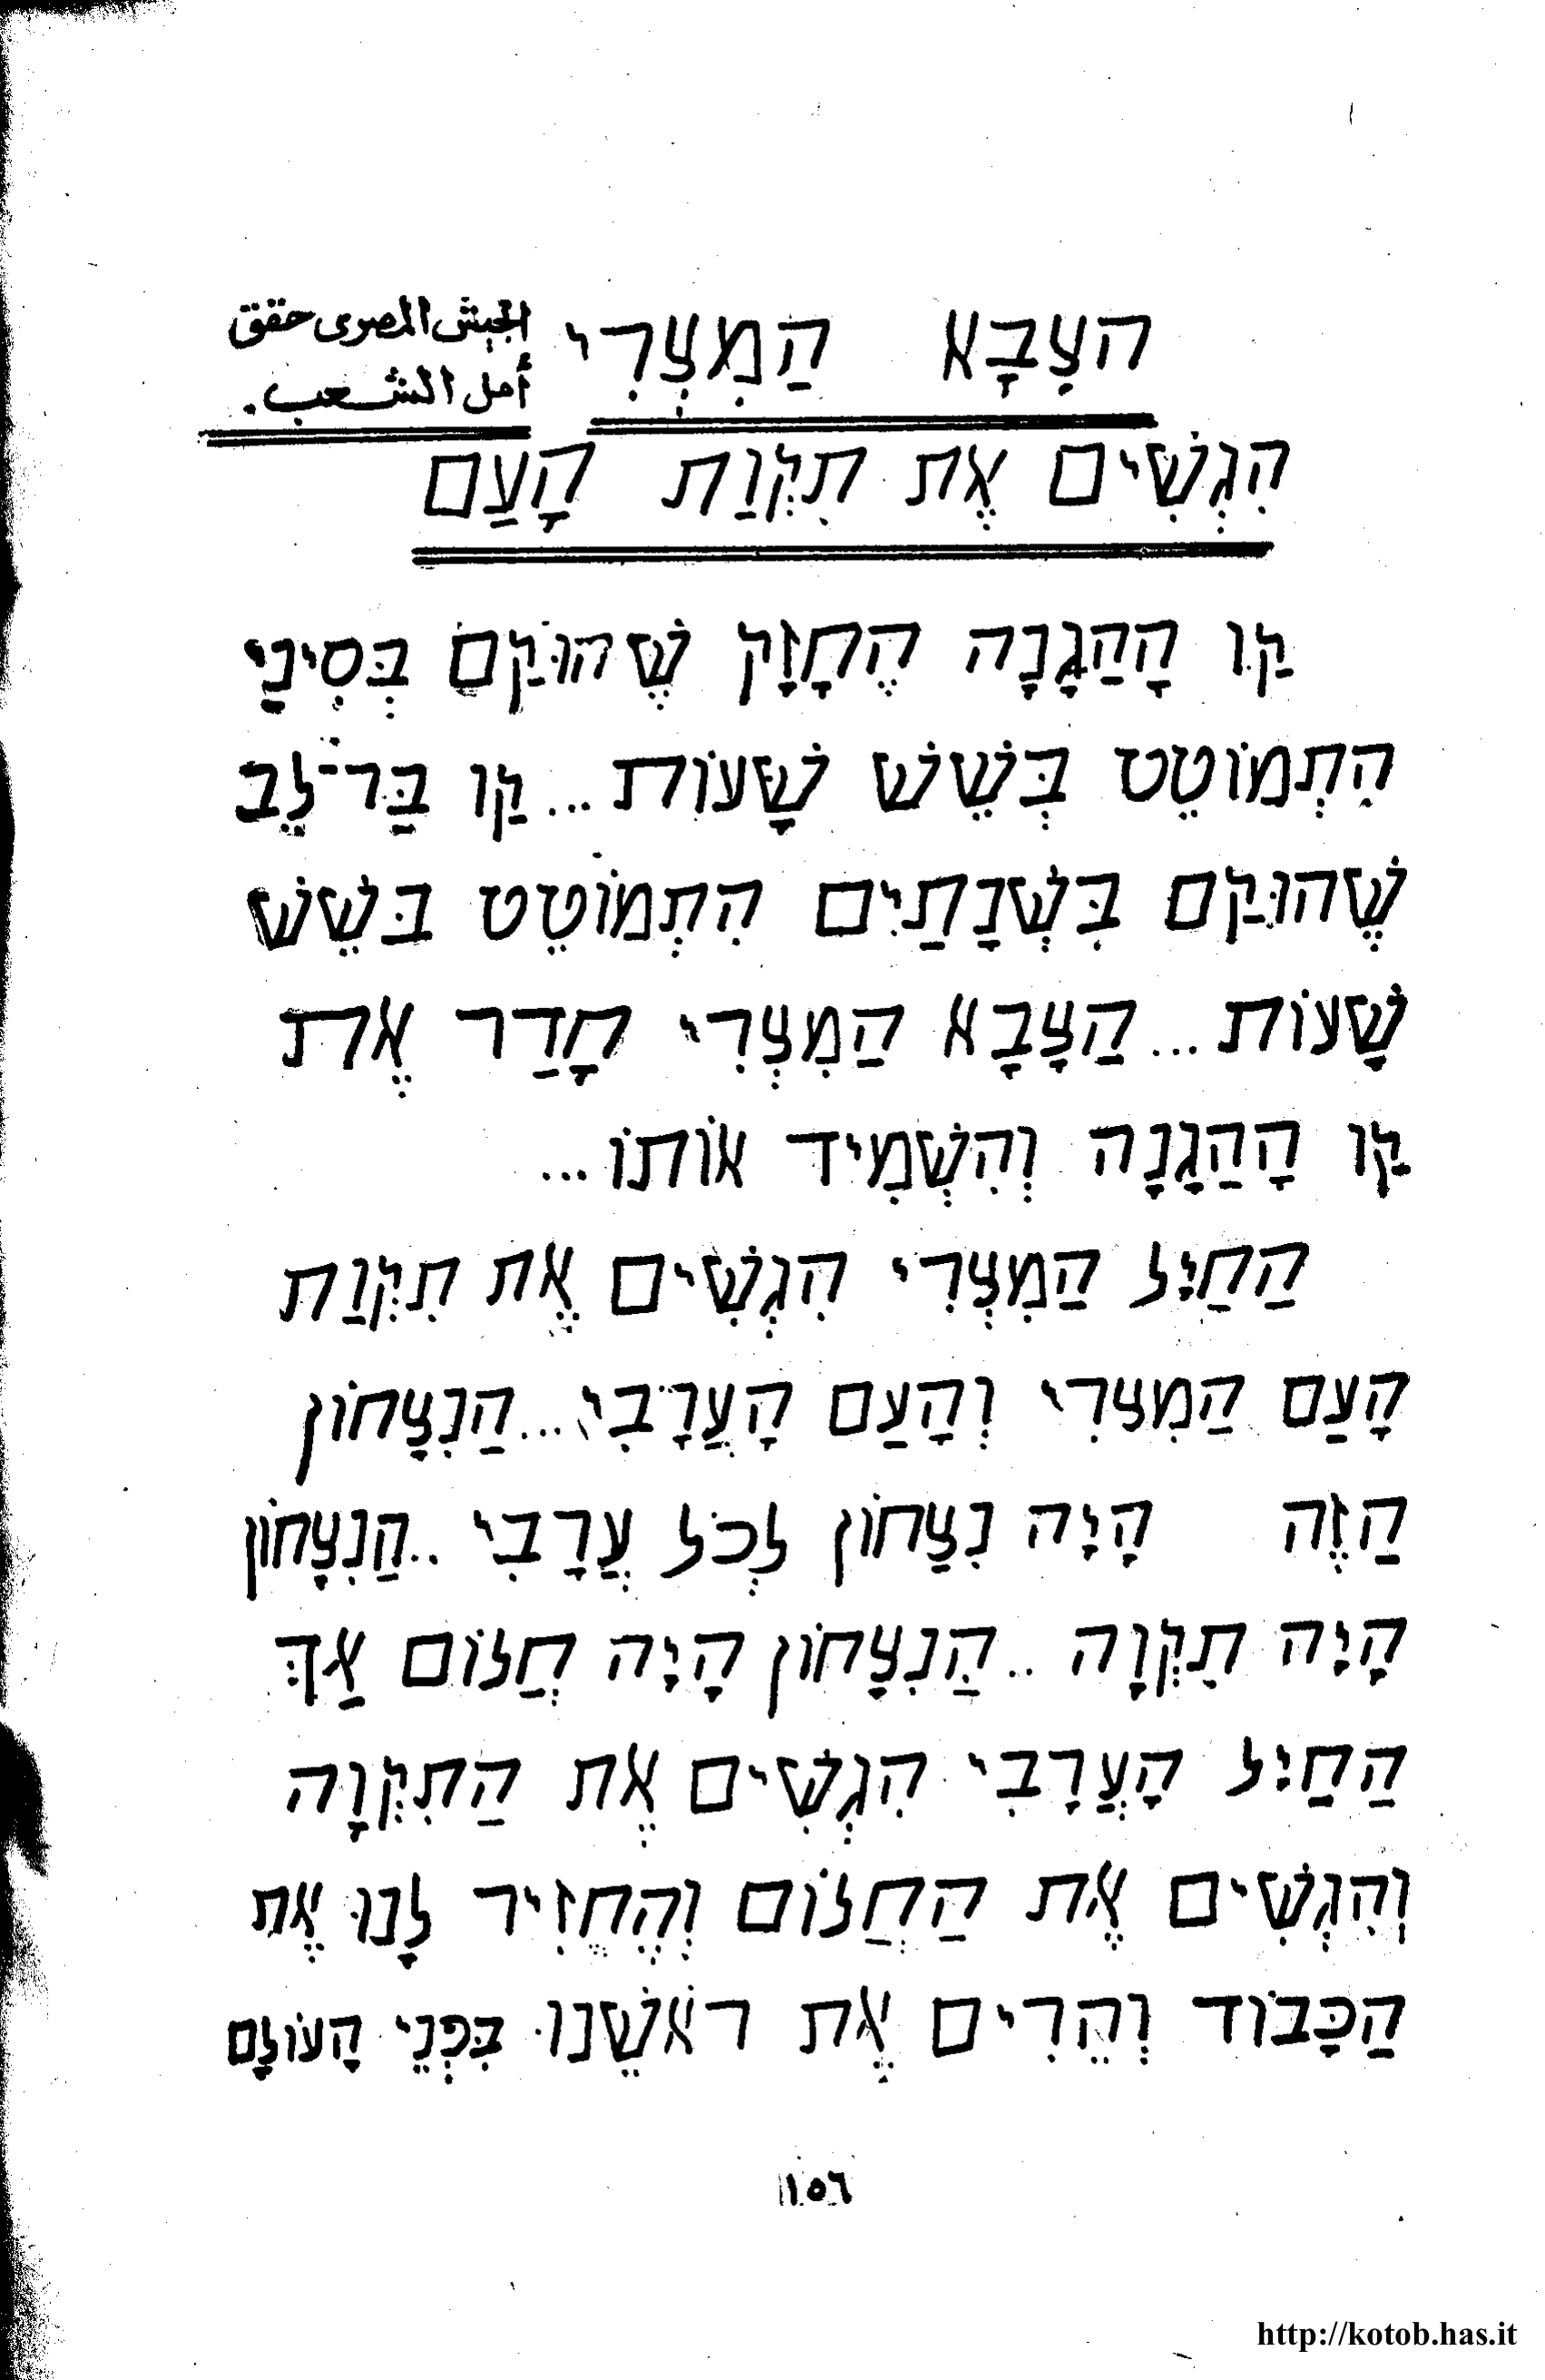 הצָבָא הַמִצְרִי
الجيش المصرى حقق
أمل الشعب.
הִגְשִׁים אֶת תִקְוַת הָעַם
קַו הָהַגָנָה הֶחָזָק שֶׁהוּקַם בְּסִינַי
הִתְמוֹטֵט בְּשֵׁשׁ שָׁעוֹת... קַו בַּר־לֵב
שֶׁהוּקַם בִּשְׁנָתַיִם הִתְמוֹטֵט בּשֵׁשׁ
שָׁעוֹת... הַצָבָא הַמִצְרִי חָדַר אֶת
קַו הָהַגָנָה וְהִשְׁמִיד אוֹתוֹ...
הַחַיִל הַמִצְרִי הִגְשִׁים אֶת תִקְוַת
הָעַם הַמִצרִי וְהָעַם הָעֲרָבִי... הַנִצָחוֹן
הַזֶה הָיָה נִצַחוֹן לְכֹל עֲרָבִי .. הַנִצָחוֹן
הָיָה תִקְוָה .. הַנִצָחוֹן הָיָה חֲלוֹם אַךְ
הַחַיִל הָעֲרָבִי הִגְשִׁים אֶת הַתִקְוָה
וְהִגְשִׁים אֶת הַחֲלוֹם וְהֶחֱזִיר לָנוּ אֶת
הַכָּבוֹד וְהֵרִים אֶת רֹאשֵׁנוּ בִּפְנֵי הָעוֹלָם
١٥٦
http://kotob.has.it